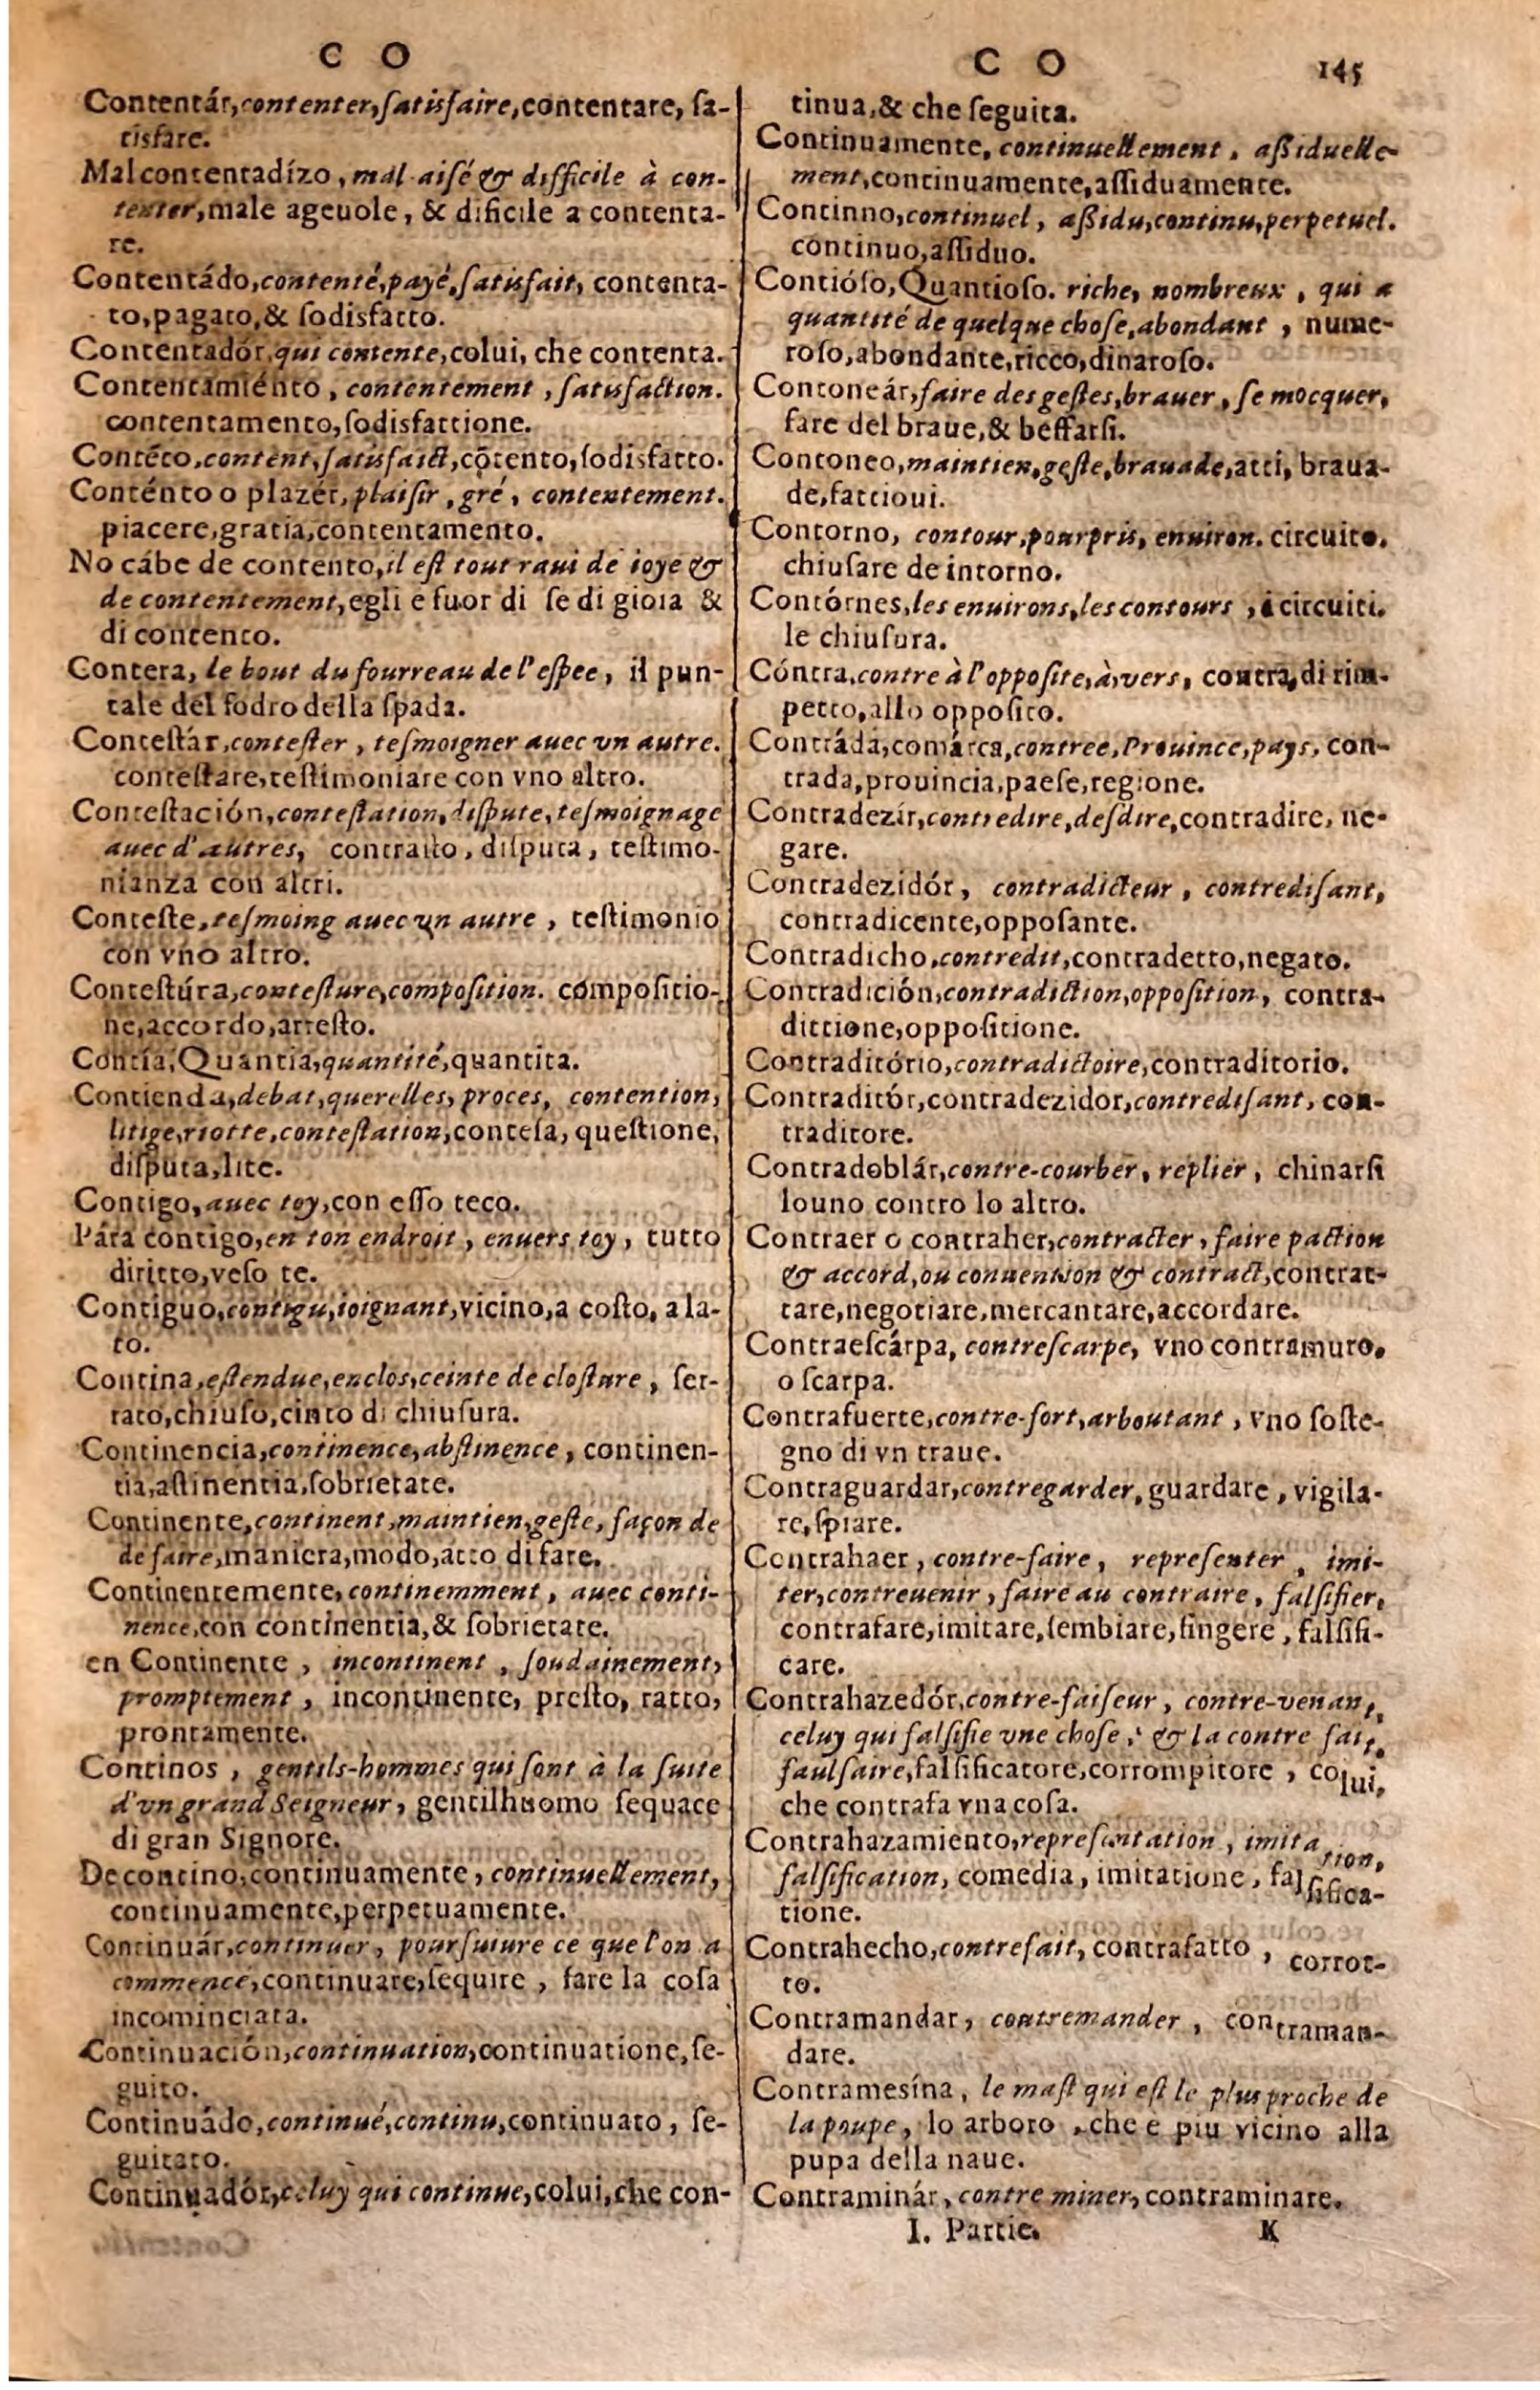 C O
Contentár, contenter, ſatisfaire, contentare, ſa-
tisfare.
Mal contentadízo, mal aisé & difficile à con-
tenter, male ageuole, & dificile a contenta-
re.
Contentádo, contenté, payé, ſatisfait, contenta-
to, pagato, & ſodisfatto.
Contentadór, qui contente, colui, che contenta.
Contentamiénto, contentement, ſatisfaction.
contentamento, ſodisfattione.
Contéto, content, ſatisfaict, cõtento, ſodisfatto.
Conténto o plazér, plaiſir, gré, contentement.
piacere, gratia, contentamento.
No cábe de contento, il eſt tout raui de ioye &
de contentement, egli e fuor di ſe di gioia &
di contento.
Contera, le bout du fourreau de l'eſpee, il pun-
tale del fodro della ſpada.
Conteſtár, conteſter, teſmoigner auec vn autre.
conteſtare, teſtimoniare con vno altro.
Conteſtación, conteſtation, diſpute, teſmoignage
auec d'autres, contraſto, diſputa, teſtimo-
nianza con altri.
Conteſte, teſmoing auec vn autre, teſtimonio
con vno altro.
Conteſtúra, conteſture, compoſition. compoſitio-
ne, accordo, arreſto.
Contía, Quantia, quantité, quantita.
Contienda, debat, querelles, proces, contention,
litige, riotte, conteſtation, conteſa, queſtione,
diſputa, lite.
Contigo, auec toy, con eſſo teco.
Pára contigo, en ton endroit, enuers toy, tutto
diritto, veſo te.
Contiguo, contigu, ioignant, vicino, a coſto, a la-
to.
Contina, eſtendue, enclos, ceinte de cloſture, ſer-
rato, chiuſo, cinto di chiuſura.
Continencia, continence, abſtinence, continen-
tia, aſtinentia, ſobrietate.
Continente, continent, maintien, geſte, façon de
de faire, maniera, modo, atto di fare.
Continentemente, continemment, auec conti-
nence, con continentia, & ſobrietate.
en Continente, incontinent, ſoudainement,
promptement, incontinente, preſto, ratto,
prontamente.
Continos, gentils-hommes qui ſont à la ſuite
d'vn grand Seigneur, gentilhuomo ſequace
di gran Signore.
De contino, continuamente, continuellement,
continuamente, perpetuamente.
Continuár, continuer, pourſuiure ce que l'on a
commencé, continuare, ſequire, fare la coſa
incominciata.
Continuación, continuation, continuatione, ſe-
guito.
Continuádo, continué, continu, continuato, ſe-
guitato.
Continuadór, celuy qui continue, colui, che con-
C O 145
tinua, & che ſeguita.
Continuamente, continuellement, aßiduelle-
ment, continuamente, aſſiduamente.
Continno, continuel, aßidu, continu, perpetuel.
continuo, aſſiduo.
Contióſo, Quantioſo. riche, nombreux, qui a
quantité de quelque choſe, abondant, nume-
roſo, abondante, ricco, dinaroſo.
Contoneár, faire des geſtes, brauer, ſe mocquer,
fare del braue, & beffarſi.
Contoneo, maintien, geſte, brauade, atti, braua-
de, fattioui.
Contorno, contour, pourpris, enuiron. circuito.
chiuſare de intorno.
Contórnes, les enuirons, les contours, i circuiti.
le chiuſura.
Cóntra, contre à l'oppoſite, à, vers, contra, di rim-
petto, allo oppoſito.
Contráda, comárca, contree, Prouince, pays, con-
trada, prouincia, paeſe, regione.
Contradezír, contredire, deſdire, contradire, ne-
gare.
Contradezidór, contradicteur, contrediſant,
contradicente, oppoſante.
Contradicho, contredit, contradetto, negato.
Contradición, contradiction, oppoſition, contra-
dittione, oppoſitione.
Contraditório, contradictoire, contraditorio.
Contraditór, contradezidor, contrediſant, con-
traditore.
Contradoblár, contre-courber, replier, chinarſi
louno contro lo altro.
Contraer o contraher, contracter, faire paction
& accord, ou conuention & contract, contrat-
tare, negotiare, mercantare, accordare.
Contraeſcárpa, contreſcarpe, vno contramuro.
o ſcarpa.
Contrafuerte, contre-fort, arboutant, vno ſoſte-
gno di vn traue.
Contraguardar, contregarder, guardare, vigila-
re, ſpiare.
Contrahaer, contre-faire, repreſenter, imi-
ter, contreuenir, faire au contraire, falſifier,
contrafare, imitare, ſembiare, fingere, falſifi-
care.
Contrahazedór, contre-faiſeur, contre-venant,
celuy qui falſifie vne choſe, & la contre fait,
faulſaire, falſificatore, corrompitore, colui,
che contrafa vna coſa.
Contrahazamiento, repreſentation, imitation,
falſification, comedia, imitatione, falſifica-
tione.
Contrahecho, contrefait, contrafatto, corrot-
to.
Contramandar, contremander, contraman-
dare.
Contrameſína, le maſt qui eſt le plus proche de
la poupe, lo arboro, che e piu vicino alla
pupa della naue.
Contraminár, contre miner, contraminare.
I. Partie. K